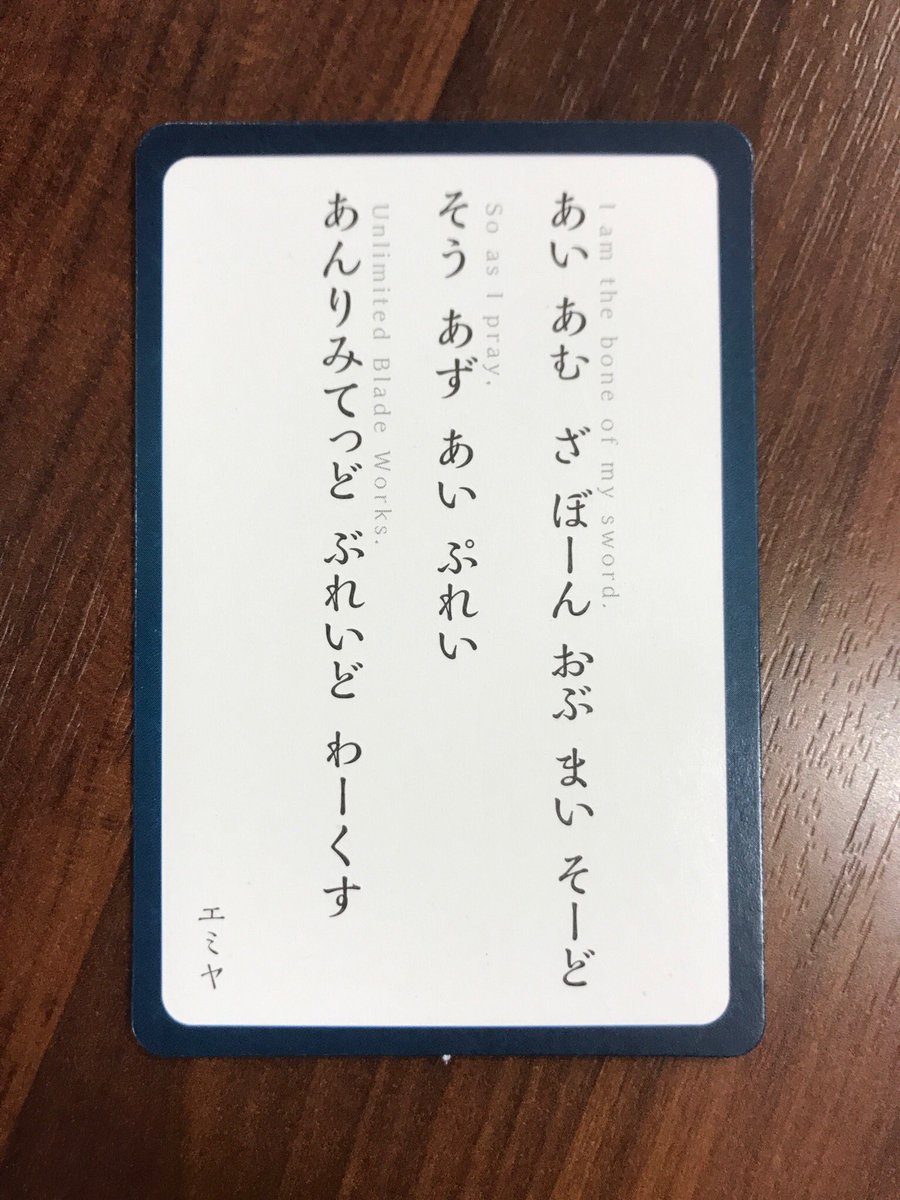 I am the bone of my sword.
あい あむ ざ ぼーん おぶ まい そーど
So as I pray,
そう あず あい ぷれい
Unlimited Blade Works.
あんりみてっど ぶれいど わーくす
エミヤ